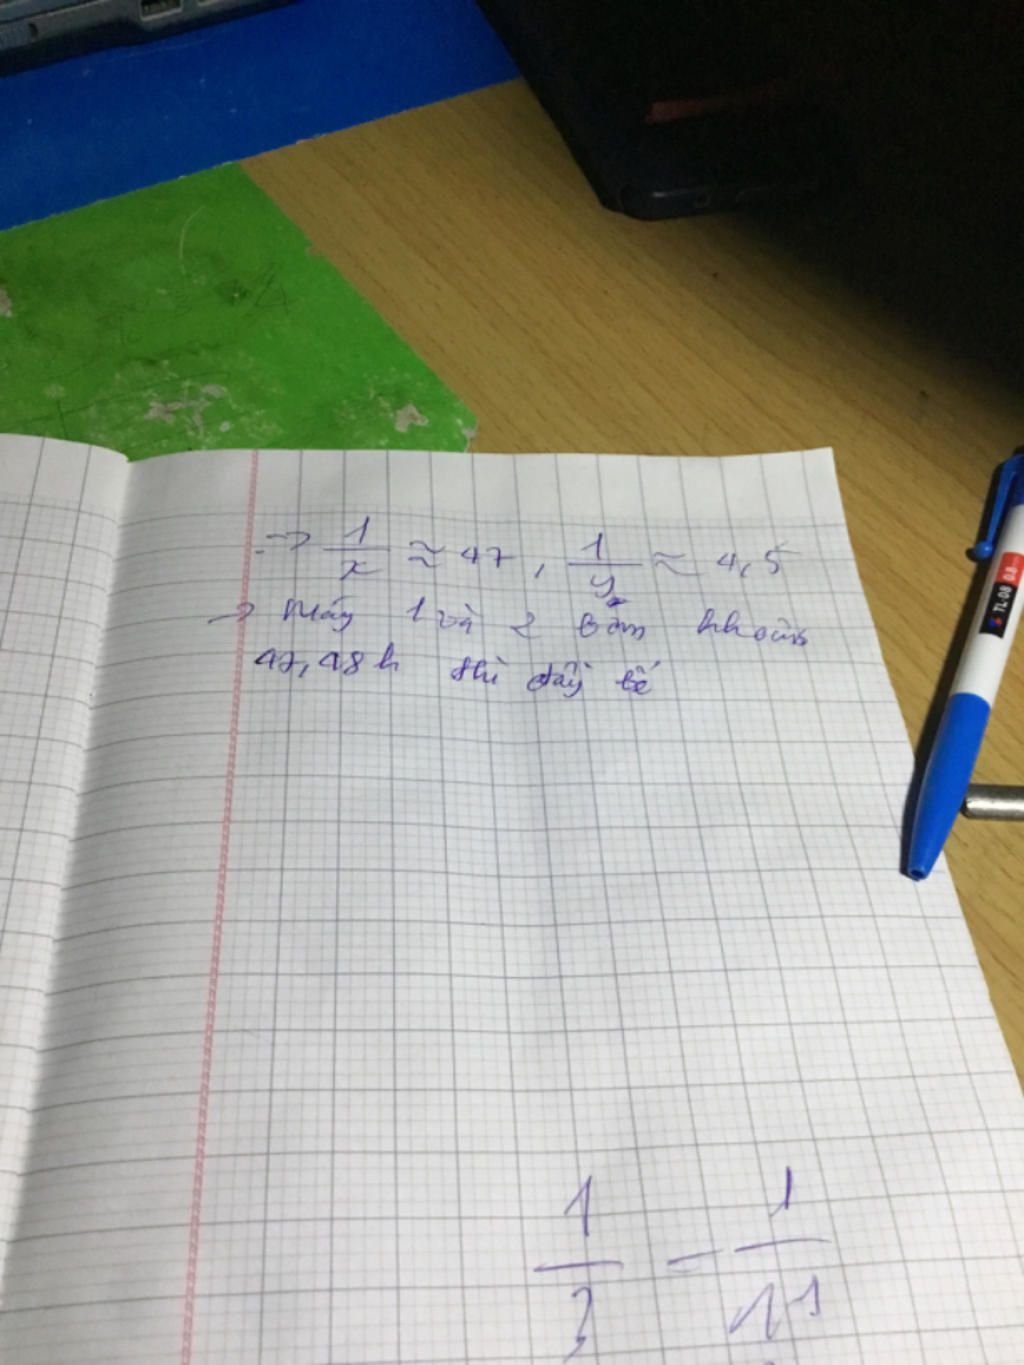 → 1/x ≈ 47, 1/y ≈ 4,5
→ Máy 1 và 2 bơm khoảng
47,48h thì đầy bể
1/3 - 1/
TL-08 0.8